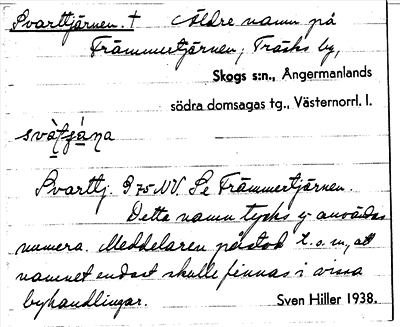 Svarttjärnen. † Äldre namn på
Främmertjärnen, Träsks by,
Skogs s:n., Ångermanlands
södra domsagas tg., Västernorrl. l.
Svarttj. 975 NV. Se Främmertjärnen.
Detta namn tycks ej användas
numera. Meddelaren påstod t.o.m., att
namnet endast skulle finnas i vissa
byhandlingar.
Sven Hiller 1938.